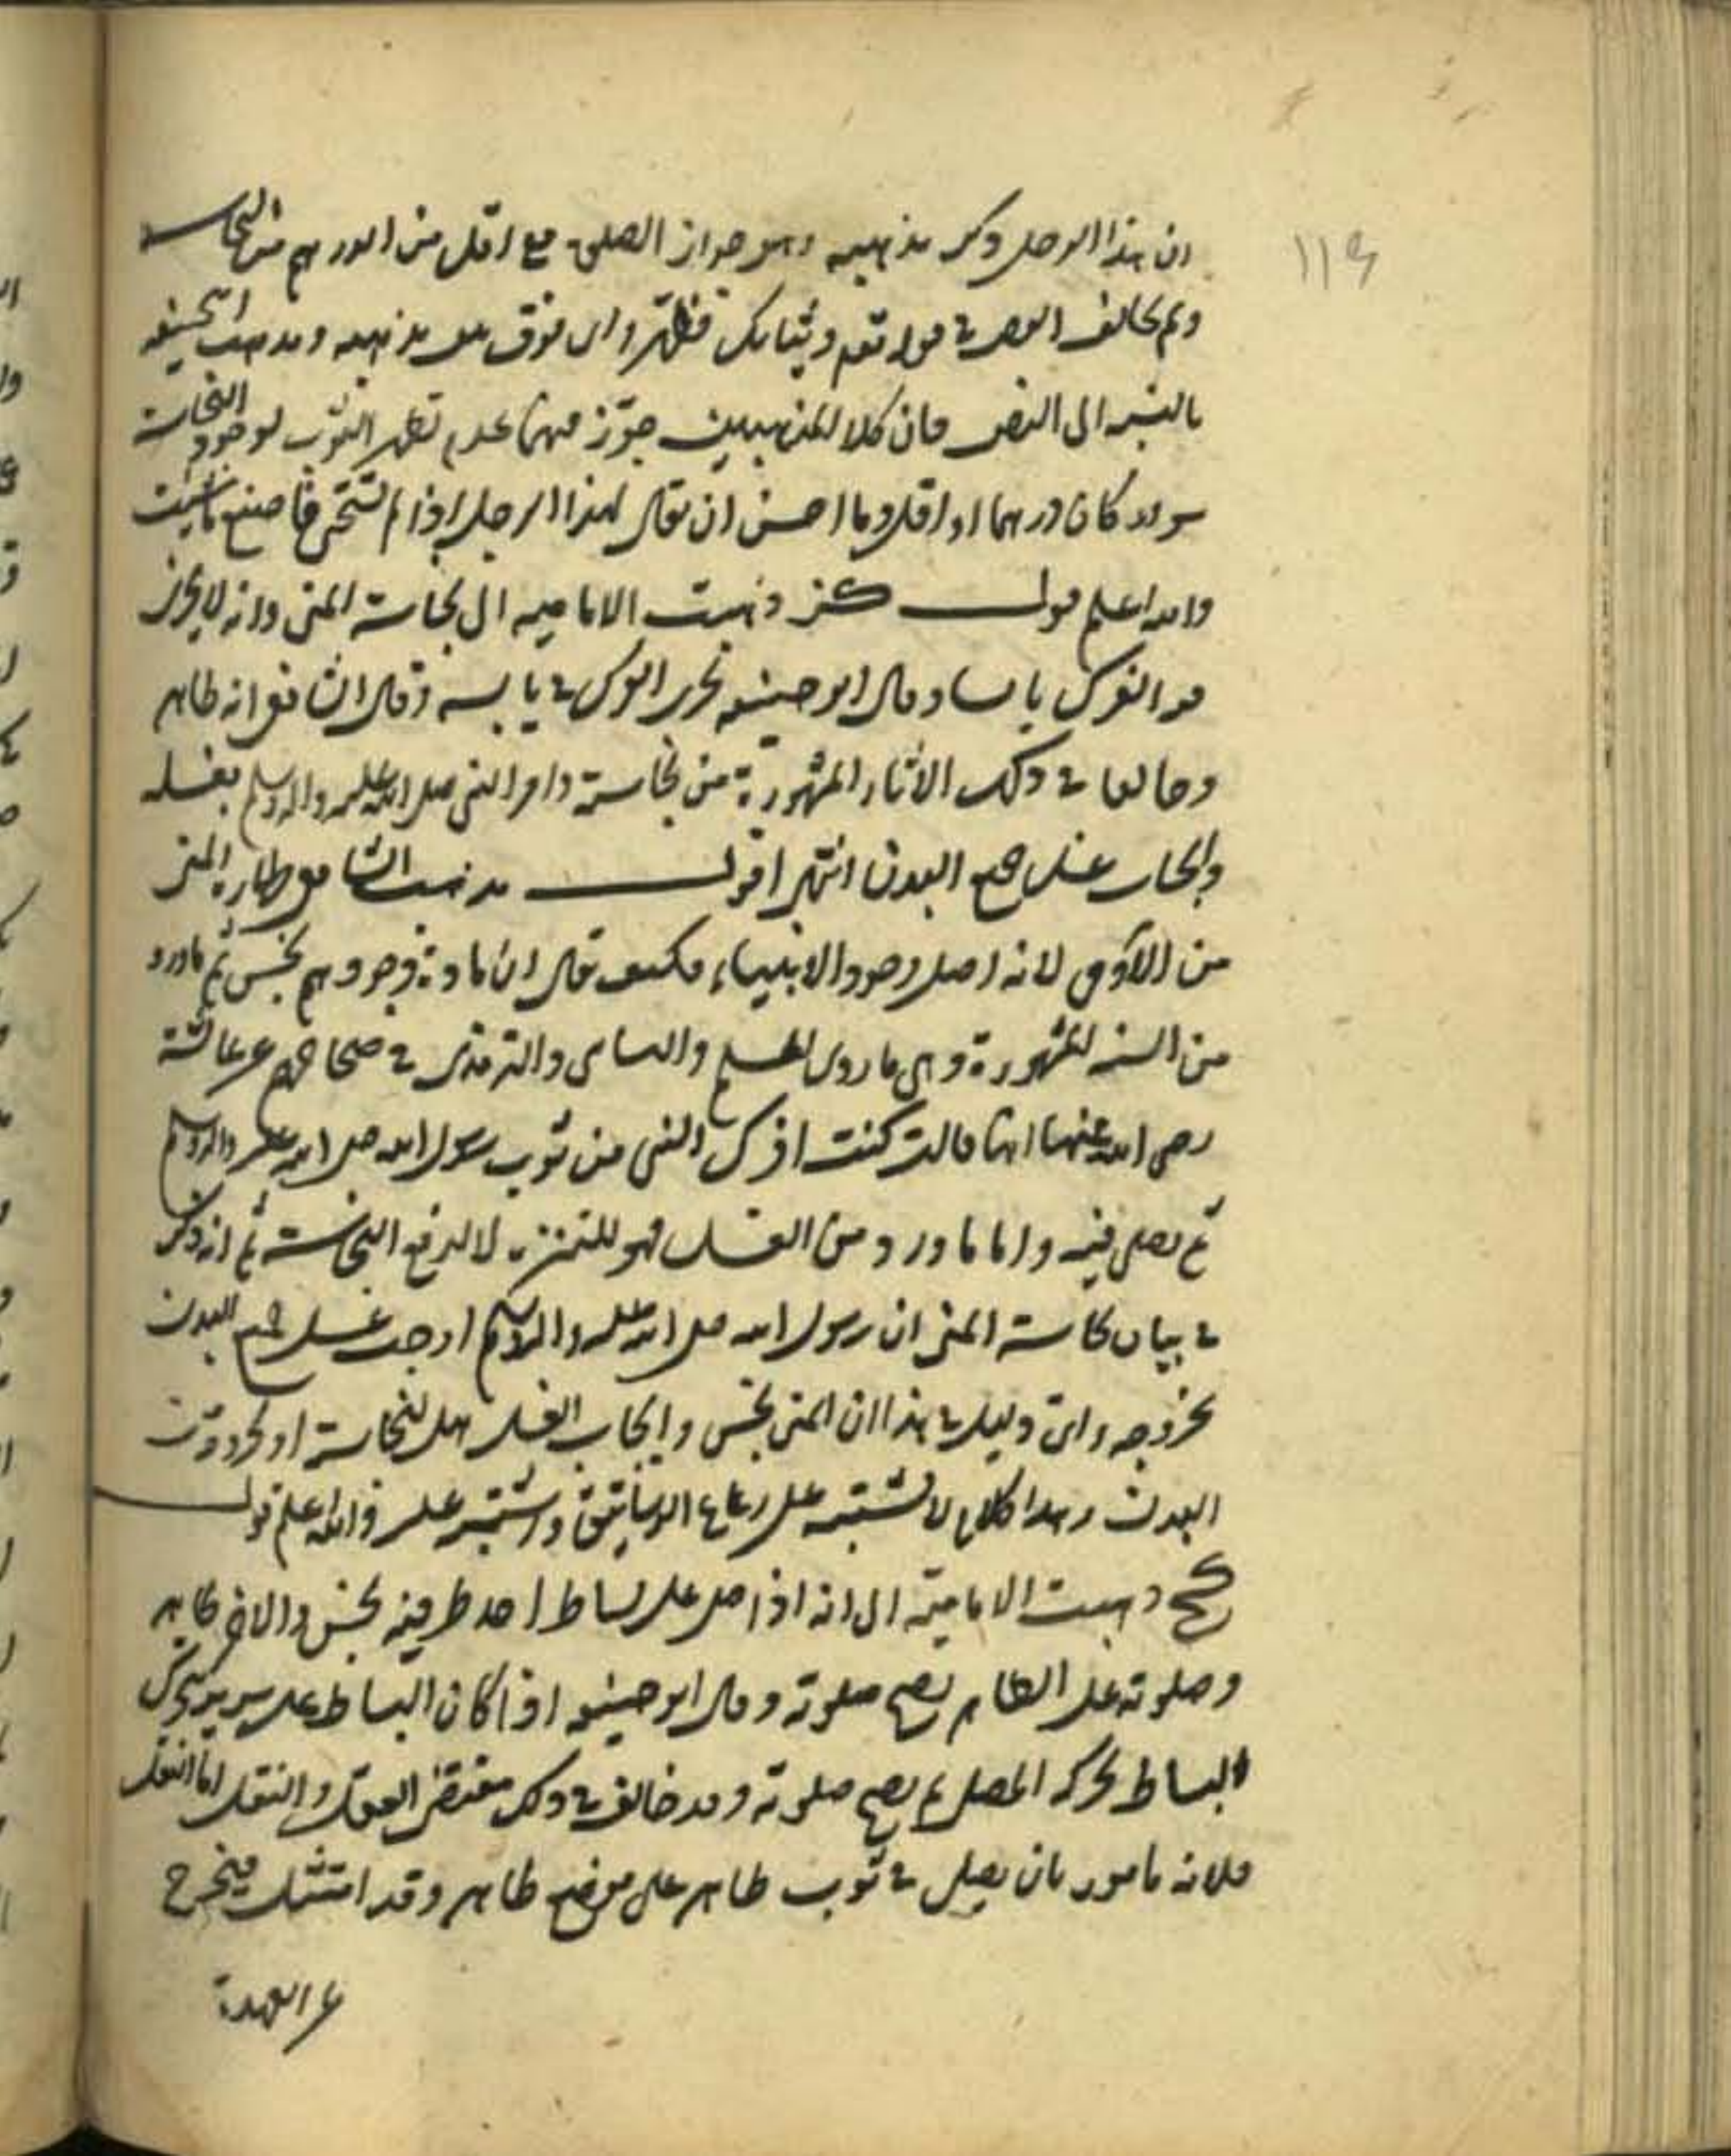 ان هذا الرجل ذكر مذهبه وهو جواز الصلوة مع اقل من الدرهم من النجاسة
119
ولم يخالف النص في قوله تعم وثيابك فطهر واي فرق بين مذهبه ومذهب ابي حنيفه
بالنسبه الى النص فان كلا المذهبين جوّز فيهما عدم تطهر الثوب لوجود النجاسة
سواء كان درهما او اقل وما احسن ان يقال لهذا الرجل اذا لم تستحي فاصنع ما شئت
والله اعلم قوله كز ذهبت الاماميه الى نجاسة المني وانه لا يجزي
فيه الفرك يابسا وقال ابو حنيفه يجزي الفرك في يابسه وقال الشافعي انه طاهر
وخالفا في ذلك الاثار المشهورة من نجاسته وامر النبي صلى الله عليه واله وسلم بغسله
وايجاب غسل جميع البدن انتهى اقول مذهب الشافعي طهارة المني
من الآدمي لانه اصل وجود الانبياء فكيف يقال ان مادة وجودهم نجس ثم ما ورد
من السنه المشهورة وهي ما روى المسلم والنسائي والترمذي في صحاحهم عن عائشة
رضي الله عنها انها قالت كنت افرك المني من ثوب رسول الله صلى الله عليه واله وسلم
ثم يصلى فيه واما ما ورد من الغسل فهو للتنزه لا لدفع النجاسة ثم انه ذكر
في بيان نجاسة المني ان رسول الله صلى الله عليه واله وسلم اوجب غسل جميع البدن
بخروجه واي دليل في هذا ان المني نجس وايجاب الغسل هل للنجاسة او لحدوث
البدن وهذا كلام لا يشتبه على رعاع الرساتيق واشتبه عليه والله اعلم قوله
كح ذهبت الاماميّه الى انه اذا صلى على بساط احد طرفيه نجس والاخر طاهر
وصلوته على الطاهر يصح صلوته وقال ابو حنيفه اذا كان البساط على سرير يتحرك
البساط بحركه المصلي لم يصح صلوته وقد خالف في ذلك مقتضى العقل والنقل اما النقل
فلانه مامور بان يصلي في ثوب طاهر على موضع طاهر وقد امتثل فيخرج
عن العهدة